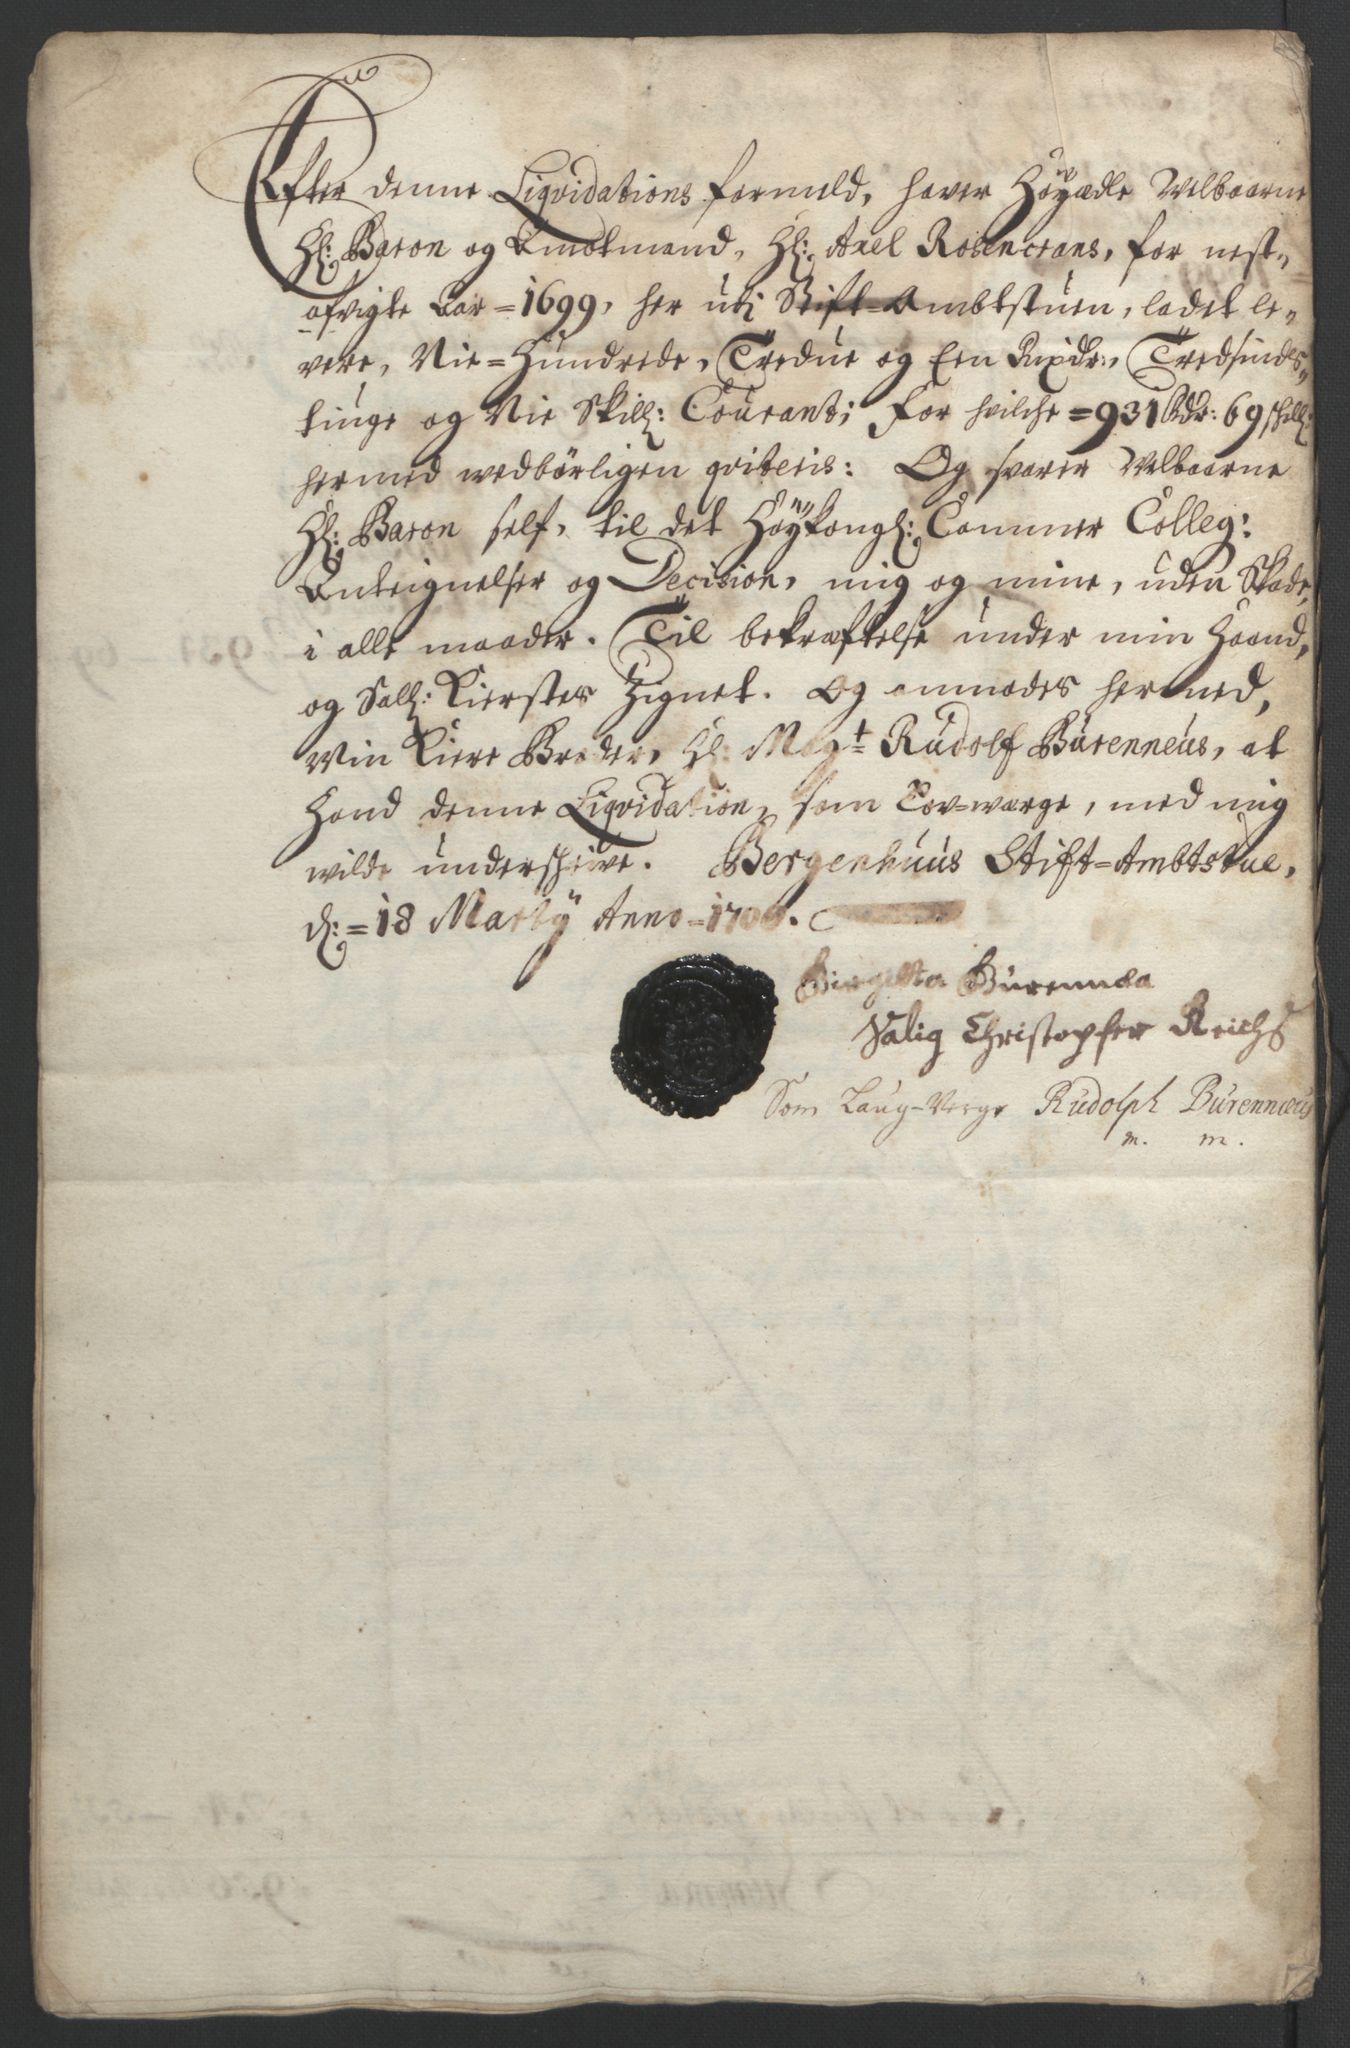 Efter denne Liqvidations formeld, hafver Höyædle Velbaarne
Hl: Baron og Ambtmand, Hl: Axel Rosencrans, for nest-
afvigte Aar = 1699, her uti Stift-Ambtstuen, ladet le-
vere, Nie = Hundrede, Tredue og Een Rixdr:, Tredsindes-
tiuge og Nie Skill: Courant; For hvilche = 931 Rdr: 69 skill:
hermed wedbörligen qviteris: Og svarer Velbaarne
Hl: Baron self, til det Höykongl: Cammer Colleg:
Anteignelser og Decision, mig og mine, uden Skade,
i alle maader. Til bekræftelse under min Haand,
og Sall: Kierstes Zignet. Og anmodes hermed,
Min Kiere Broder, Hl: Magt Rudolf Bürenneus, at
Hand denne Liqvidation, som Lov-værge, med mig
wilde underschrive. Bergenhuus Stift-Ambtstue,
d: = 18 Marty Anno = 1700.
Birgitta Burennæa
Salig Christopher Reichs
Som Laug-Verge Rudolph Burennæus
m. m.